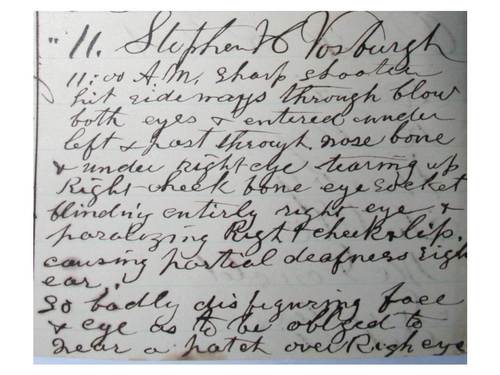 " 11. Stephen H Vosburgh
11:00 A.M. Sharp shooter
hit sideways through blow
both eyes & entered under
left & past through nose bone
& under right eye tearing up
Right cheek bone eye socket
blinding entirly right eye &
paralizing Right cheek & lip.
causing partial deafness Righ
ear,
So badly disfiguring face
& eye as to be obliged to
wear a patch over Righ eye